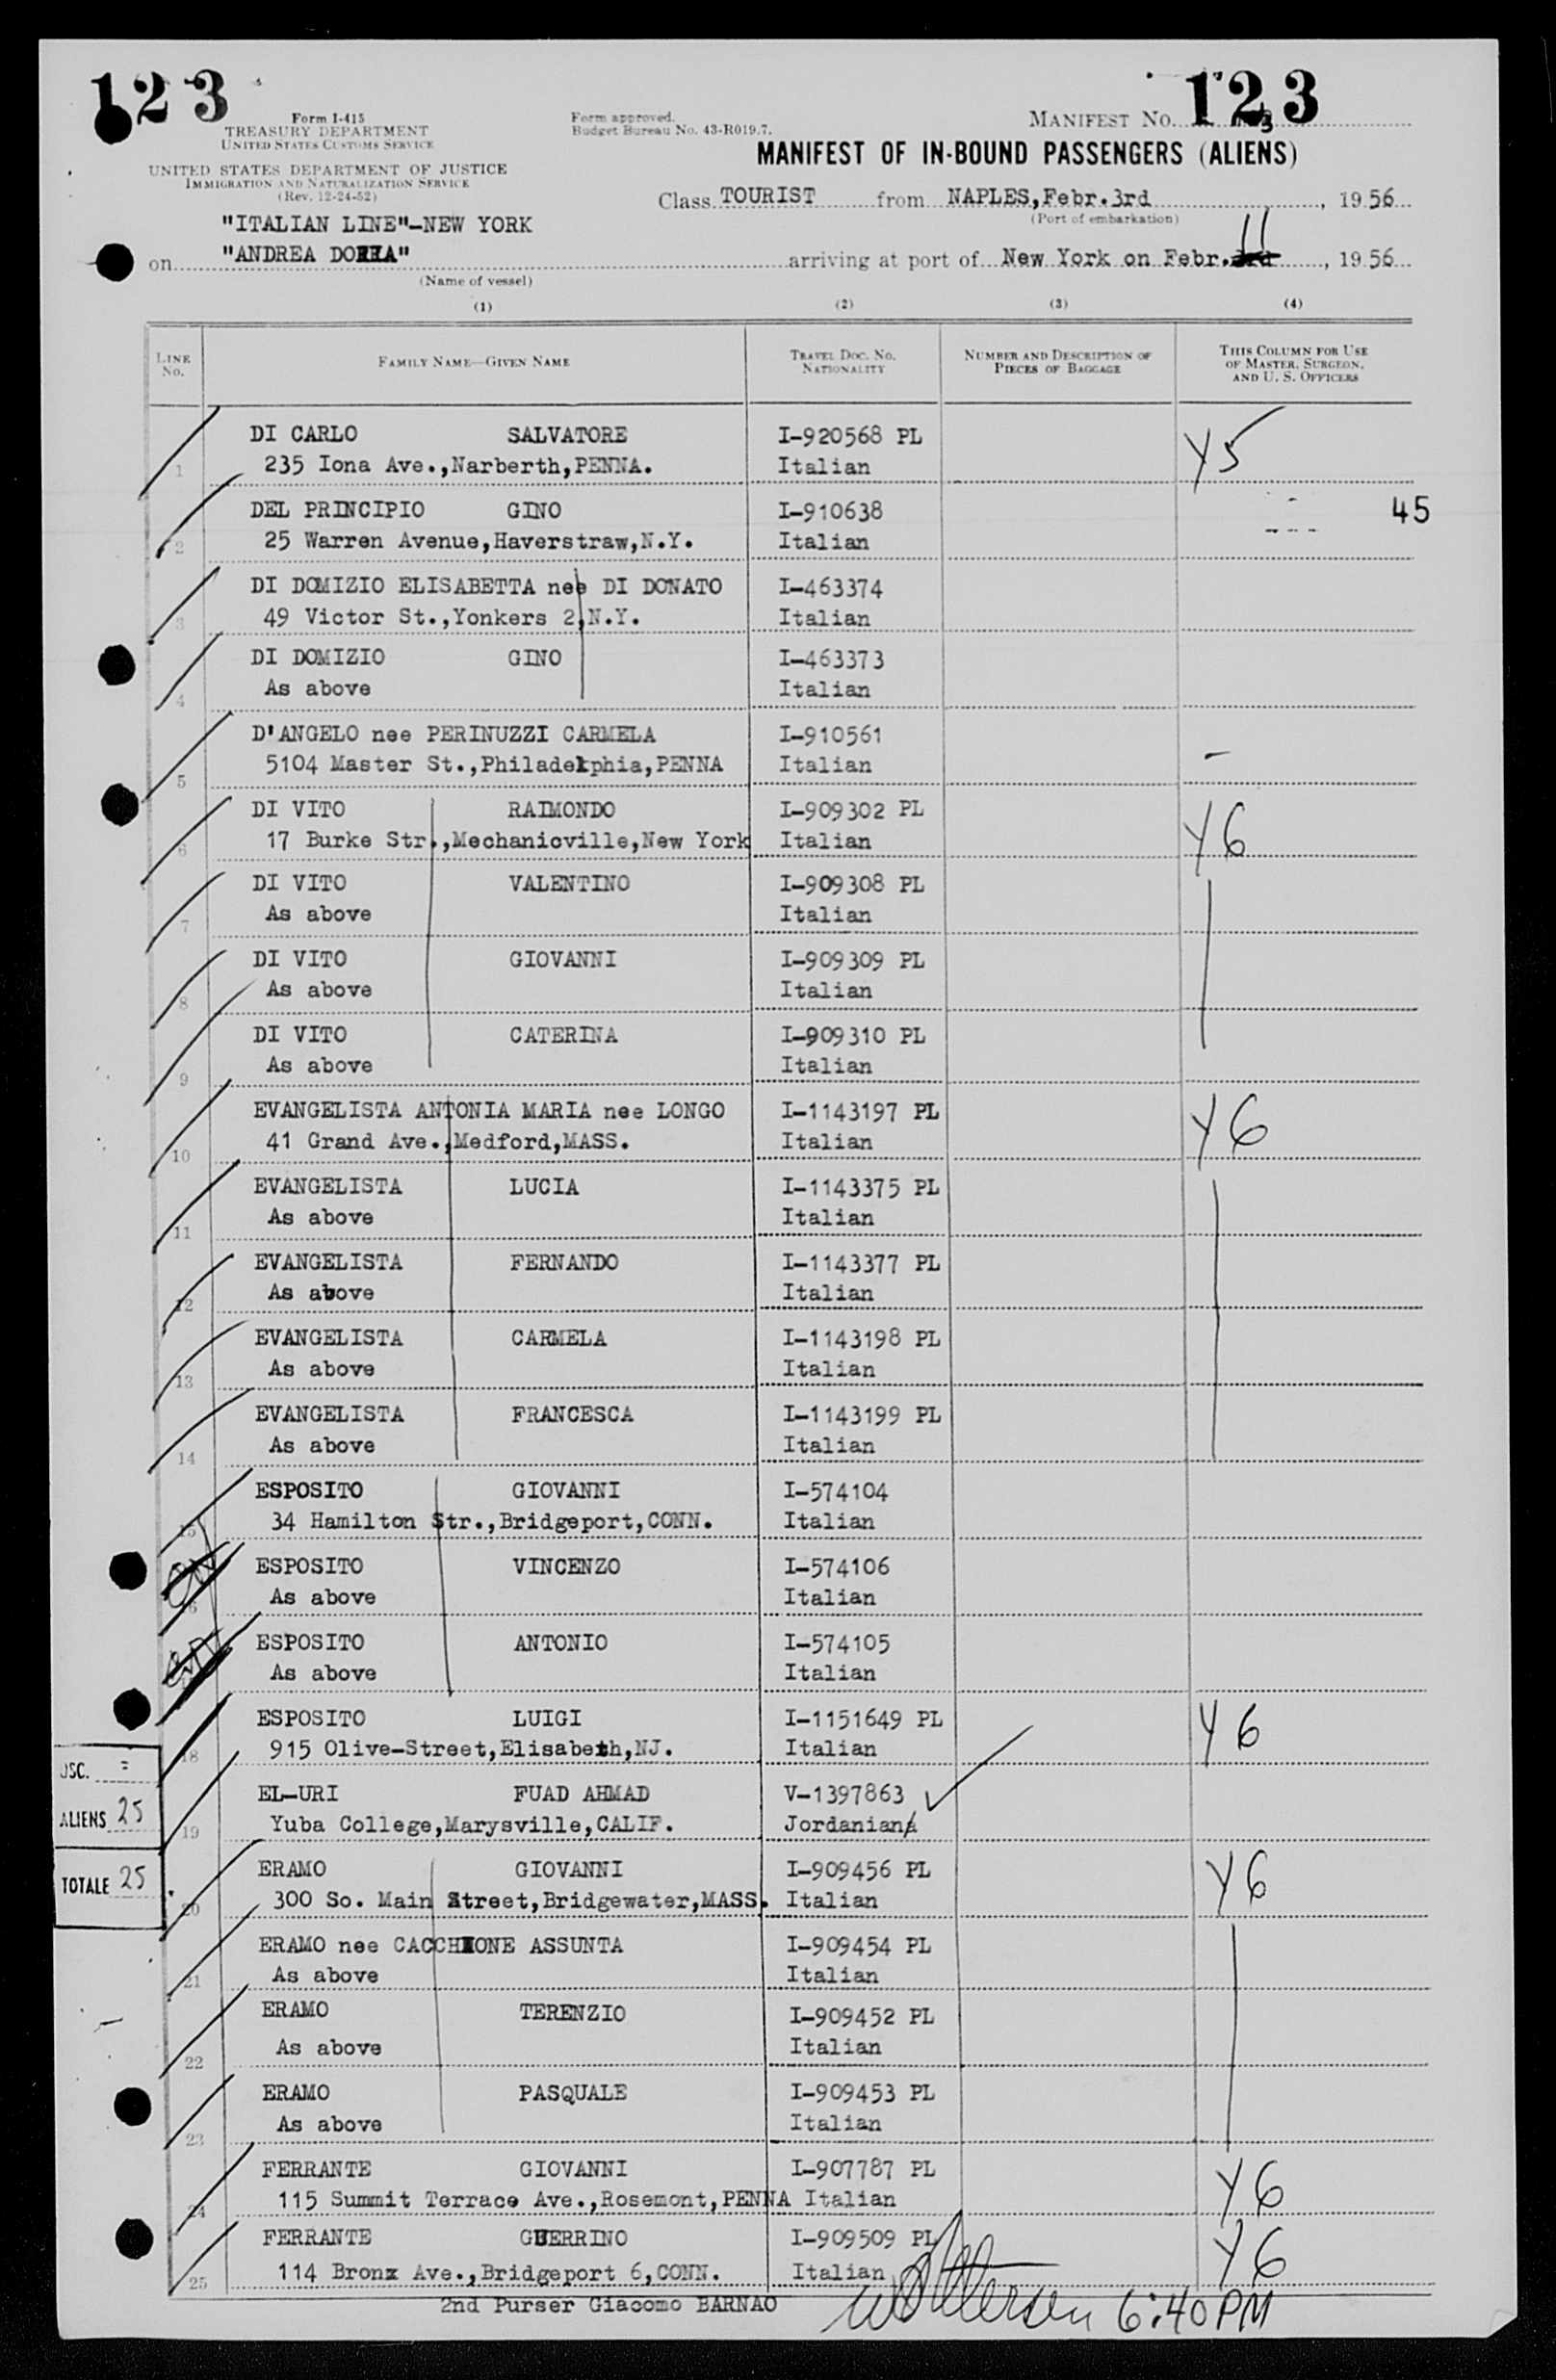 123
Form I-415
TREASURY DEPARTMENT
UNITED STATES CUSTOMS SERVICE
UNITED STATES DEPARTMENT OF JUSTICE
IMMIGRATION AND NATURALIZATION SERVICE
(Rev. 12-24-52)
Form approved.
Budget Bureau No. 43-R019.7.
MANIFEST NO. 123
3
MANIFEST OF IN-BOUND PASSENGERS (ALIENS)
Class TOURIST from NAPLES,Febr.3rd, 1956
(Port of embarkation)
"ITALIAN LINE"-NEW YORK
on "ANDREA DORIA" arriving at port of New York on Febr. 11, 1956
(Name of vessel)
(1) (2) (3) (4)
LINE No. FAMILY NAME—GIVEN NAME TRAVEL DOC. NO. NATIONALITY NUMBER AND DESCRIPTION OF PIECES OF BAGGAGE THIS COLUMN FOR USE OF MASTER, SURGEON, AND U. S. OFFICERS
DI CARLO SALVATORE I-920568 PL Y5
1 235 Iona Ave.,Narberth,PENNA. Italian
DEL PRINCIPIO GINO I-910638 45
2 25 Warren Avenue,Haverstraw,N.Y. Italian
DI DOMIZIO ELISABETTA nee DI DONATO I-463374
3 49 Victor St.,Yonkers 2,N.Y. Italian
DI DOMIZIO GINO I-463373
4 As above Italian
D'ANGELO nee PERINUZZI CARMELA I-910561
5 5104 Master St.,Philadelphia,PENNA Italian -
DI VITO RAIMONDO I-909302 PL Y6
6 17 Burke Str.,Mechanicville,New York Italian
DI VITO VALENTINO I-909308 PL
7 As above Italian
DI VITO GIOVANNI I-909309 PL
8 As above Italian
DI VITO CATERINA I-909310 PL
9 As above Italian
EVANGELISTA ANTONIA MARIA nee LONGO I-1143197 PL Y6
10 41 Grand Ave.,Medford,MASS. Italian
EVANGELISTA LUCIA I-1143375 PL
11 As above Italian
EVANGELISTA FERNANDO I-1143377 PL
12 As above Italian
EVANGELISTA CARMELA I-1143198 PL
13 As above Italian
EVANGELISTA FRANCESCA I-1143199 PL
14 As above Italian
ESPOSITO GIOVANNI I-574104
15 34 Hamilton Str.,Bridgeport,CONN. Italian
ESPOSITO VINCENZO I-574106
16 As above Italian
ESPOSITO ANTONIO I-574105
As above Italian
ESPOSITO LUIGI I-1151649 PL Y6
18 915 Olive-Street,Elisabeth,NJ. Italian
EL-URI FUAD AHMAD V-1397863 ✓
19 Yuba College,Marysville,CALIF. Jordanian
ERAMO GIOVANNI I-909456 PL Y6
20 300 So. Main Street,Bridgewater,MASS. Italian
ERAMO nee CACCHIONE ASSUNTA I-909454 PL
21 As above Italian
ERAMO TERENZIO I-909452 PL
22 As above Italian
ERAMO PASQUALE I-909453 PL
23 As above Italian
FERRANTE GIOVANNI I-907787 PL Y6
24 115 Summit Terrace Ave.,Rosemont,PENNA Italian
FERRANTE GUERRINO I-909509 PL Y6
25 114 Bronx Ave.,Bridgeport 6,CONN. Italian
USC. =
ALIENS 25
TOTALE 25
2nd Purser Giacomo BARNAO 6:40 PM